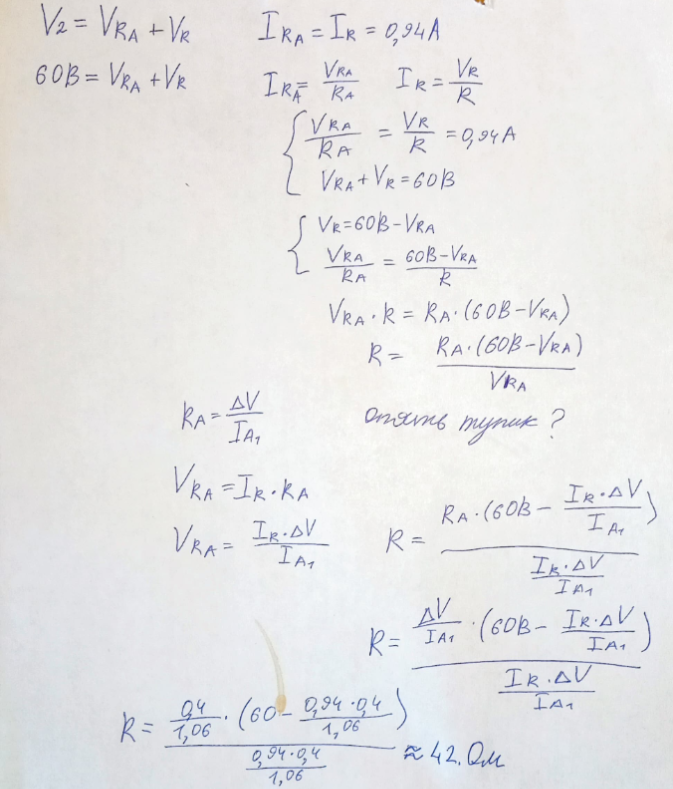 V₂ = V_RA + V_R    I_RA = I_R = 0,94А
60В = V_RA + V_R    I_RA = V_RA/R_A    I_R = V_R/R
{ V_RA/R_A = V_R/R = 0,94А
V_RA + V_R = 60В
{ V_R = 60В - V_RA
V_RA/R_A = (60В - V_RA)/R
V_RA · R = R_A · (60В - V_RA)
R = R_A · (60В - V_RA)/V_RA
R_A = ΔV/I_A1    опять тупик?
V_RA = I_R · R_A
V_RA = I_R · ΔV/I_A1    R = R_A · (60В - I_R · ΔV/I_A1)/(I_R · ΔV/I_A1)
R = ΔV/I_A1 · (60В - I_R · ΔV/I_A1)/(I_R · ΔV/I_A1)
R = 0,4/1,06 · (60 - 0,94 · 0,4/1,06)/(0,94 · 0,4/1,06) ≈ 42. Ом